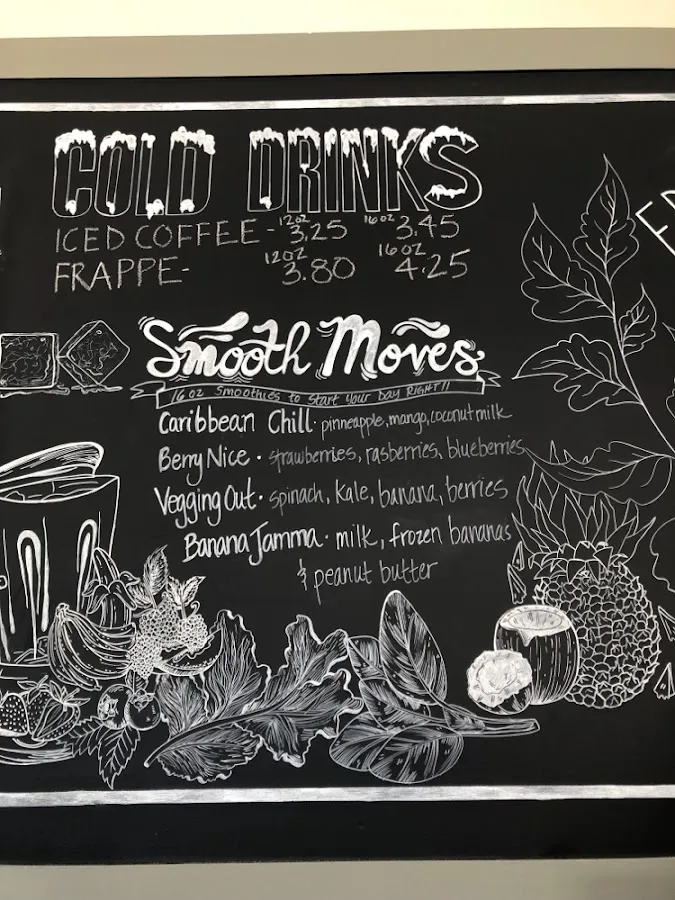 COLD DRINKS
ICED COFFEE - 12oz 3.25 16oz 3.45
FRAPPE- 12oz 3.80 16oz 4.25
Smooth Moves
16 oz Smoothies to Start your Day RIGHT!!
Caribbean Chill · pinneapple, mango, coconut milk
Berry Nice · strawberries, rasberries, blueberries
Vegging Out · spinach, kale, banana, berries
Banana Jamma · milk, frozen bananas
& peanut butter